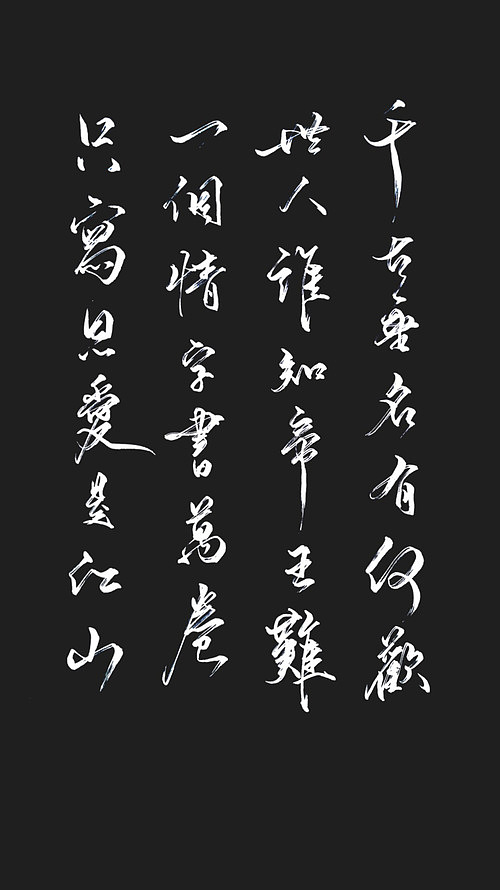 千古垂名有何歡
世人誰知帝王難
一個情字書萬卷
只寫恩愛是江山